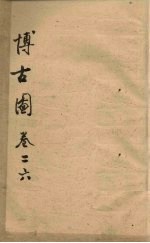 博古圖卷二六